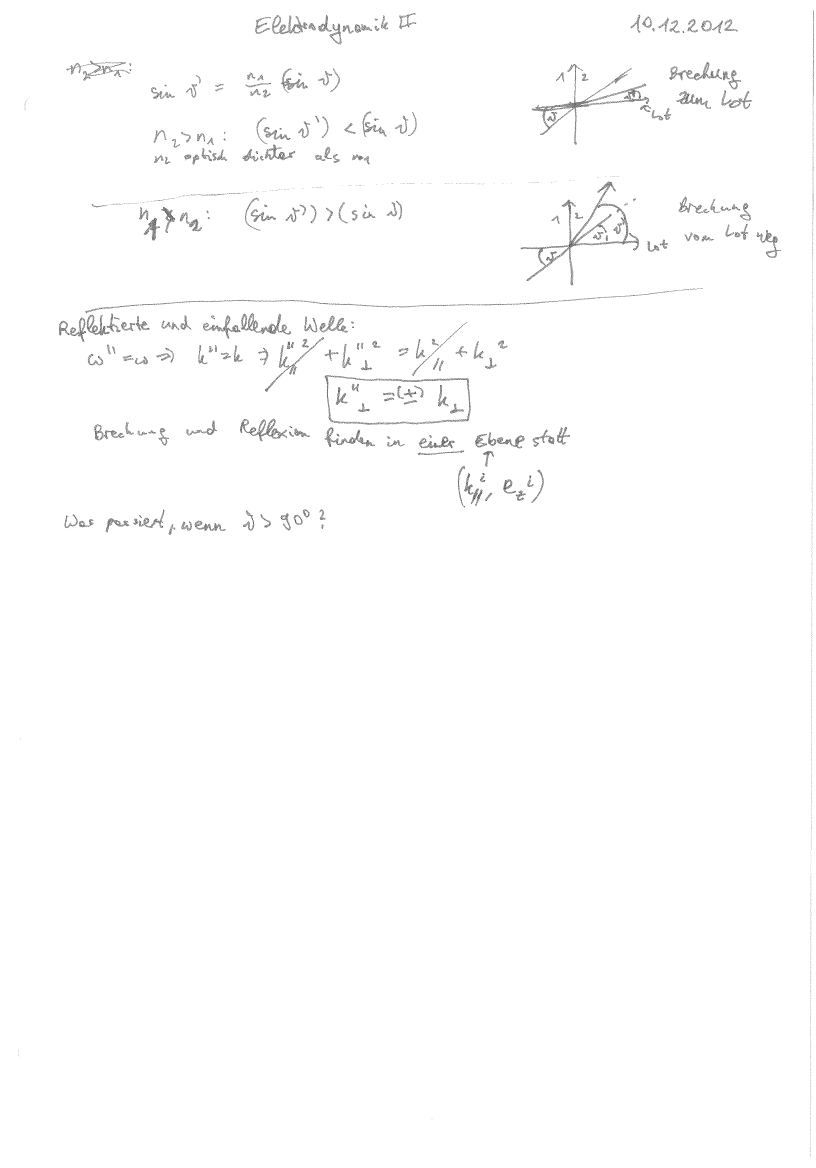 Elektrodynamik II 10.12.2012
n₂>n₁:
sin ϑ' = n₁/n₂ (sin ϑ)
1 2 ϑ ϑ' Lot
Brechung
zum Lot
n₂>n₁: (sin ϑ') < (sin ϑ)
n₂ optisch dichter als n₁
n₁>n₂: (sin ϑ') > (sin ϑ)
1 2 ϑ ϑ ϑ' Lot
Brechung
vom Lot weg
Reflektierte und einfallende Welle:
ω''=ω ⇒ k''=k ⇒ k''∥² + k''⊥² = k∥² + k⊥²
k''⊥ = (±) k⊥
Brechung und Reflexion finden in einer Ebene statt
↑
(k∥ⁱ, e_zⁱ)
Was passiert, wenn ϑ > 90° ?